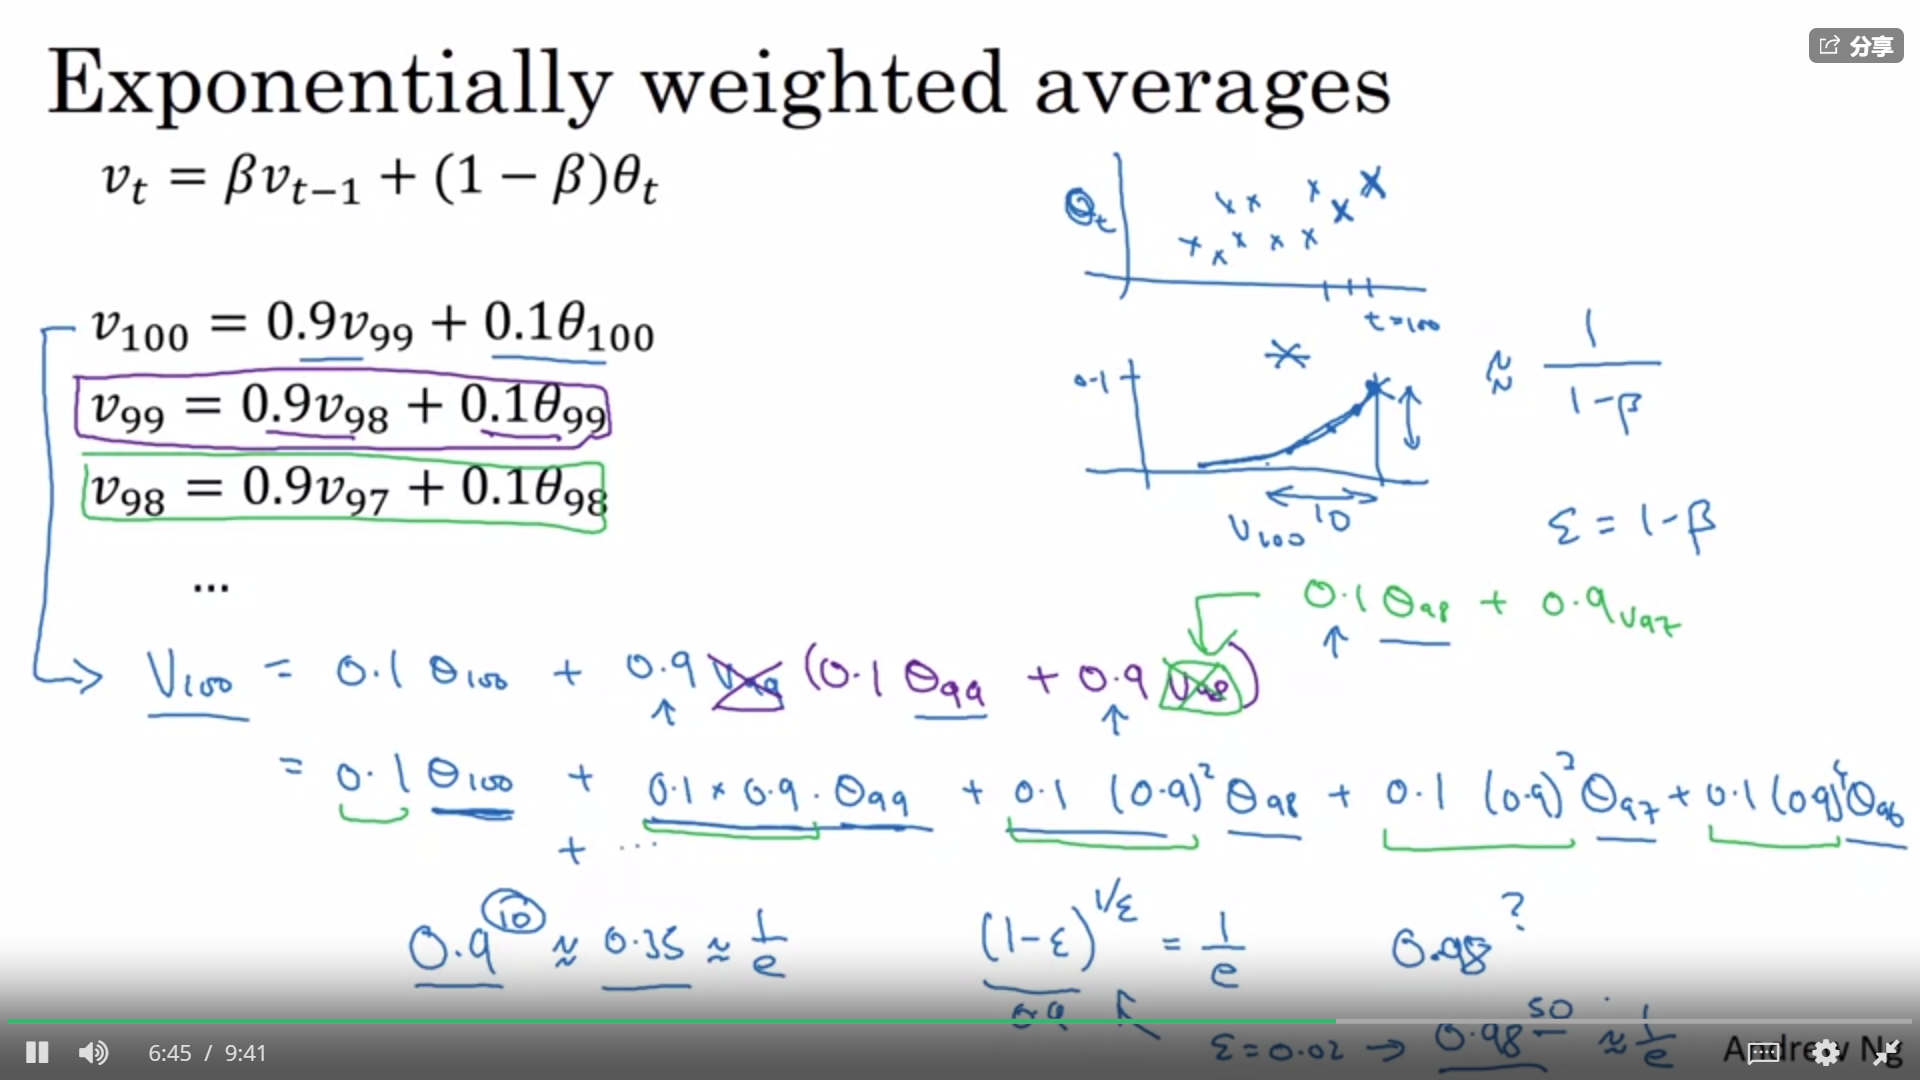 分享
Exponentially weighted averages
v_t = βv_{t−1} + (1 − β)θ_t
θ_t
t=100
v_{100} = 0.9v_{99} + 0.1θ_{100}
v_{99} = 0.9v_{98} + 0.1θ_{99}
v_{98} = 0.9v_{97} + 0.1θ_{98}
...
0.1
≈ 1/(1-β)
10
V_{100}
ε = 1-β
0.1 θ_{98} + 0.9 V_{97}
V_{100} = 0.1 θ_{100} + 0.9 V_{99} (0.1 θ_{99} + 0.9 V_{98})
= 0.1 θ_{100} + 0.1 × 0.9 · θ_{99} + 0.1 (0.9)^2 θ_{98} + 0.1 (0.9)^3 θ_{97} + 0.1 (0.9)^4 θ_{96}
+ ...
0.9^{10} ≈ 0.35 ≈ 1/e
(1-ε)^{1/ε} = 1/e
0.98^?
0.9
ε = 0.02 → 0.98^{50} ≈ 1/e
Andrew Ng
6:45 / 9:41